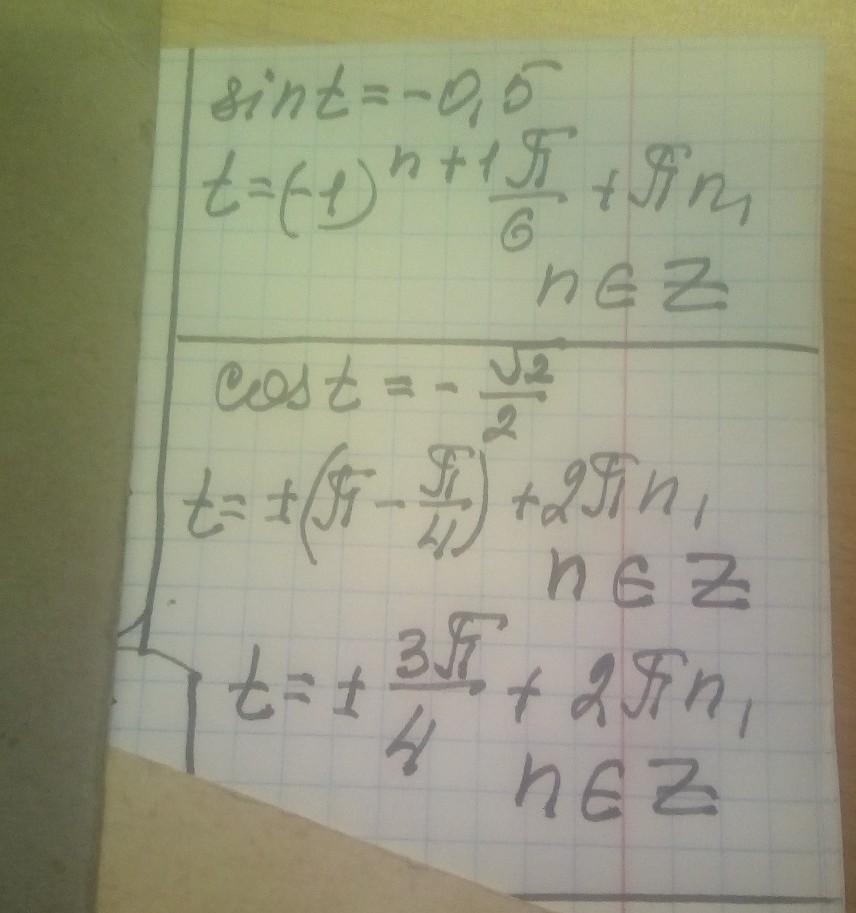 sin t = -0,5
t = (-1)^{n+1} \frac{π}{6} + πn,
n ∈ Z
cos t = - \frac{√2}{2}
t = ±(π - \frac{π}{4}) + 2πn,
n ∈ Z
t = ± \frac{3π}{4} + 2πn,
n ∈ Z